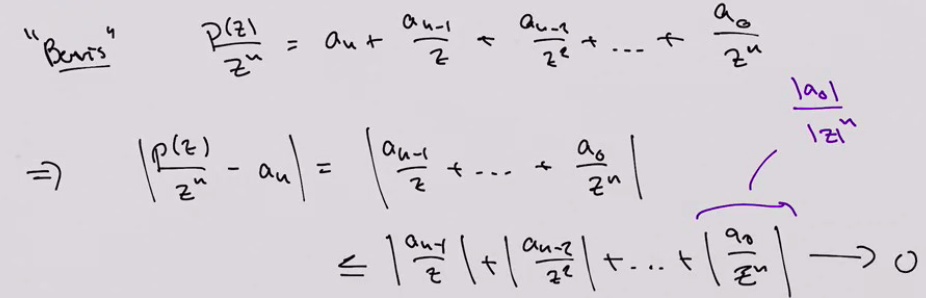 "Bevis" P(z)/z^n = a_n + a_{n-1}/z + a_{n-2}/z^2 + ... + a_0/z^n
|a_0|/|z|^n
⇒ |p(z)/z^n - a_n| = |a_{n-1}/z + ... + a_0/z^n|
≤ |a_{n-1}/z| + |a_{n-2}/z^2| + ... + |a_0/z^n| → 0